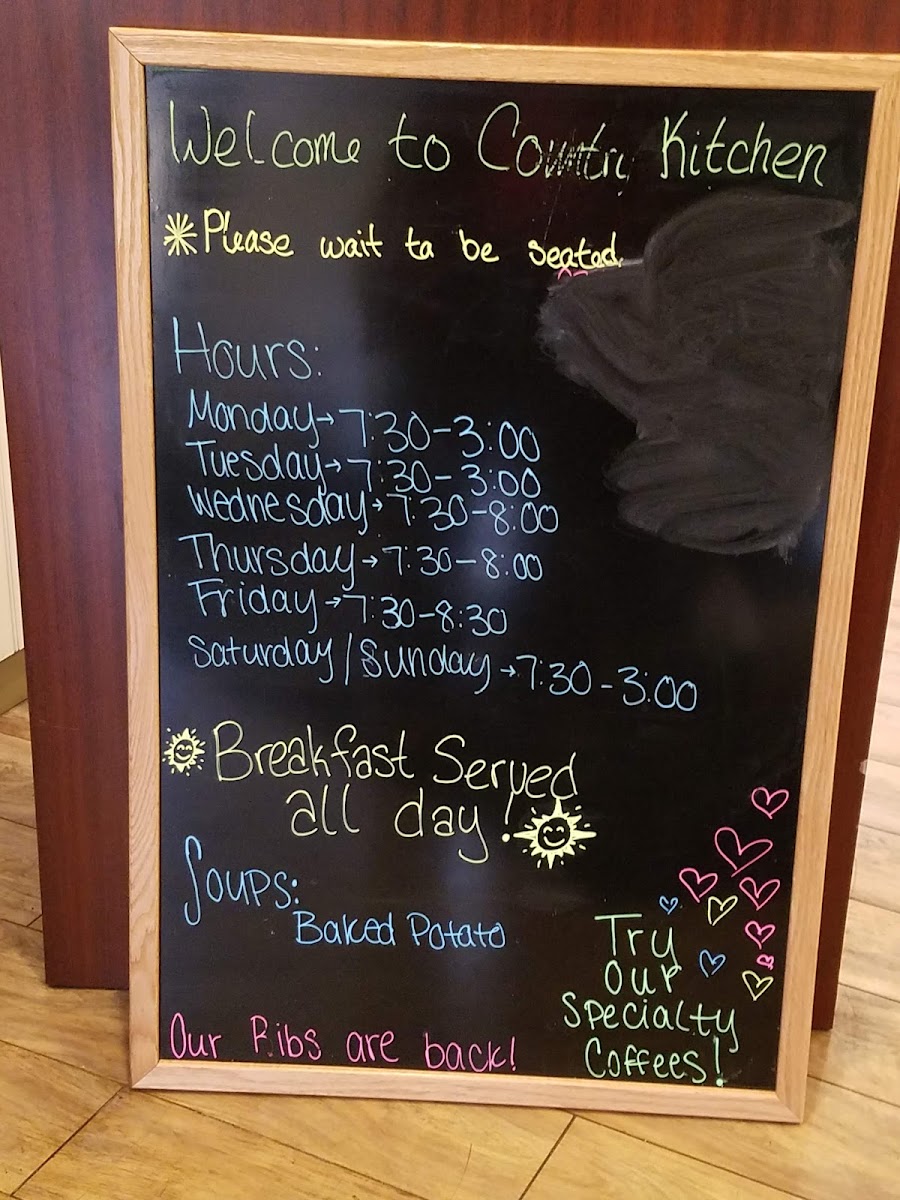 Welcome to Country Kitchen
*Please wait to be seated
Hours:
Monday→7:30-3:00
Tuesday→7:30-3:00
Wednesday→7:30-8:00
Thursday→7:30-8:00
Friday→7:30-8:30
Saturday/Sunday→7:30-3:00
Breakfast Served
all day!
Soups:
Baked Potato
Try
our
Specialty
Coffees!
Our Ribs are back!